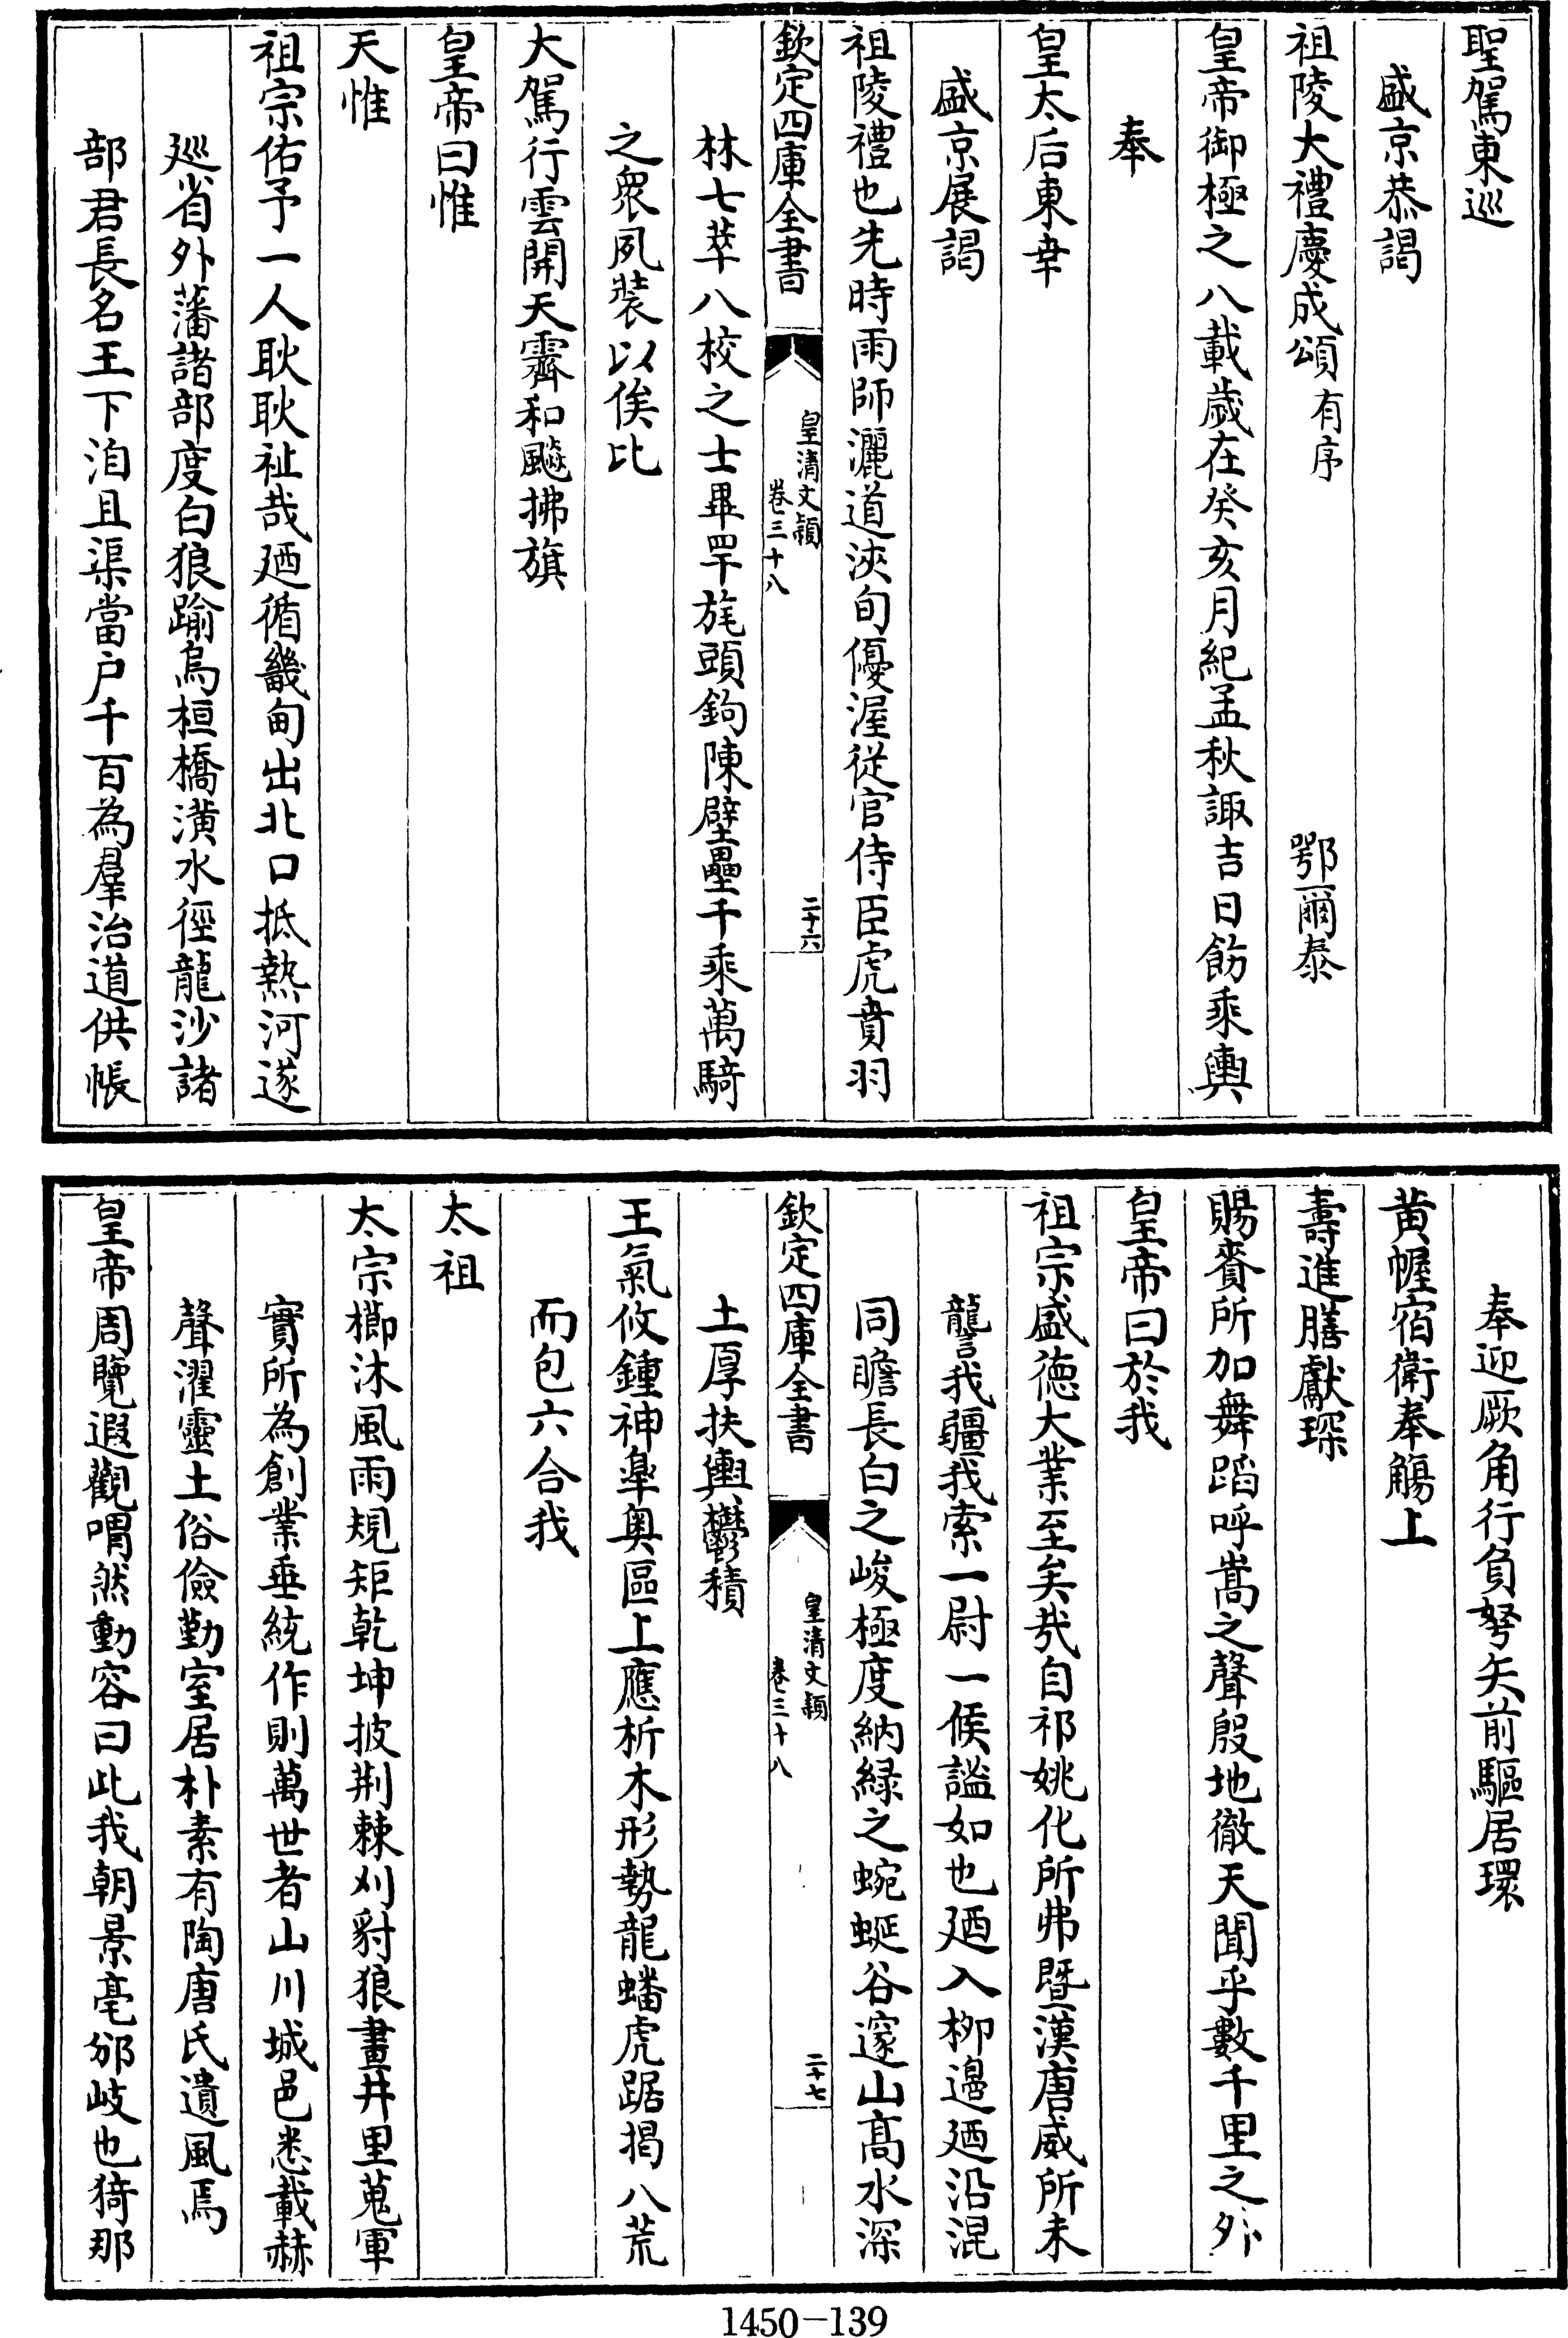 聖駕東巡
盛京恭謁
祖陵大禮慶成頌有序 鄂爾泰
皇帝御極之八載歲在癸亥月紀孟秋諏吉日飭乘輿
奉
皇太后東幸
盛京展謁
祖陵禮也先時雨師灑道浹旬優渥從官侍臣虎賁羽
欽定四庫全書
皇清文穎
卷三十八
二十六
林七萃八校之士畢罕旄頭鉤陳壁壘千乘萬騎
之衆夙裝以俟比
大駕行雲開天霽和飈拂旗
皇帝曰惟
天惟
祖宗佑予一人耿耿祉哉廼循畿甸出北口抵熱河遂
巡省外藩諸部度白狼踰烏桓橋潢水徑龍沙諸
部君長名王下洎且渠當户千百為羣治道供帳
奉迎厥角行負弩矢前驅居環
黄幄宿衛奉觴上
壽進膳獻琛
賜賚所加舞蹈呼嵩之聲殷地徹天聞乎數千里之外
皇帝曰於我
祖宗盛德大業至矣哉自祁姚化所弗暨漢唐威所未
讋我疆我索一尉一候謐如也廼入栁邊廼沿混
同瞻長白之峻極度納緑之蜿蜒谷邃山髙水深
欽定四庫全書
皇清文穎
卷三十八
二十七
土厚扶輿鬱積
王氣攸鍾神臯奥區上應析木形勢龍蟠虎踞揭八荒
而包六合我
太祖
太宗櫛沐風雨規矩乾坤披荆棘刈豺狼畫井里蒐軍
實所為創業垂統作則萬世者山川城邑悉載赫
聲濯靈土俗儉勤室居朴素有陶唐氏遺風焉
皇帝周覽遐觀喟然動容曰此我朝景亳邠岐也猗那
1450-139